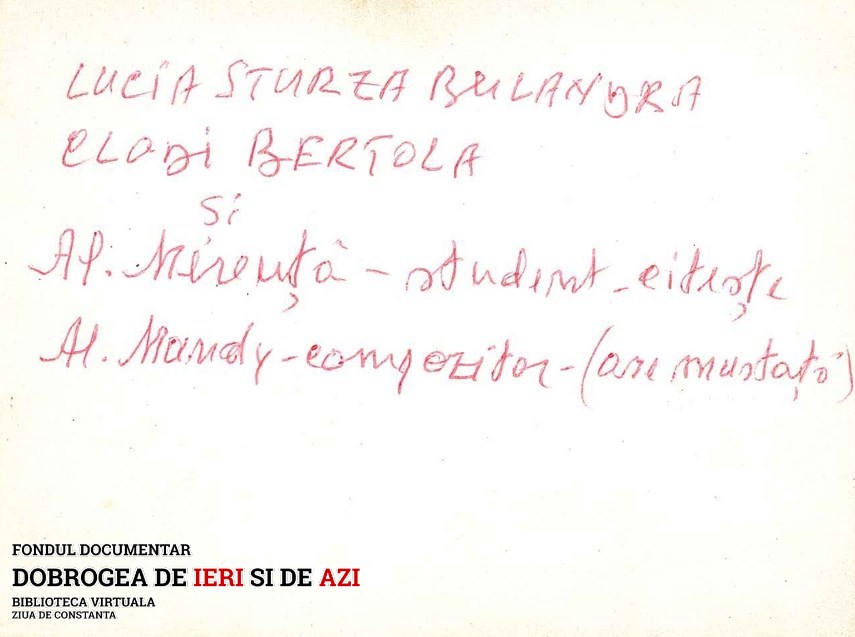 LUCIA STURZA BULANDRA
CLODI BERTOLA
si
Al. Mirență - student - citește
Al. Mandy - compozitor - (are mustață)
FONDUL DOCUMENTAR
DOBROGEA DE IERI SI DE AZI
BIBLIOTECA VIRTUALA
ZIUA DE CONSTANTA